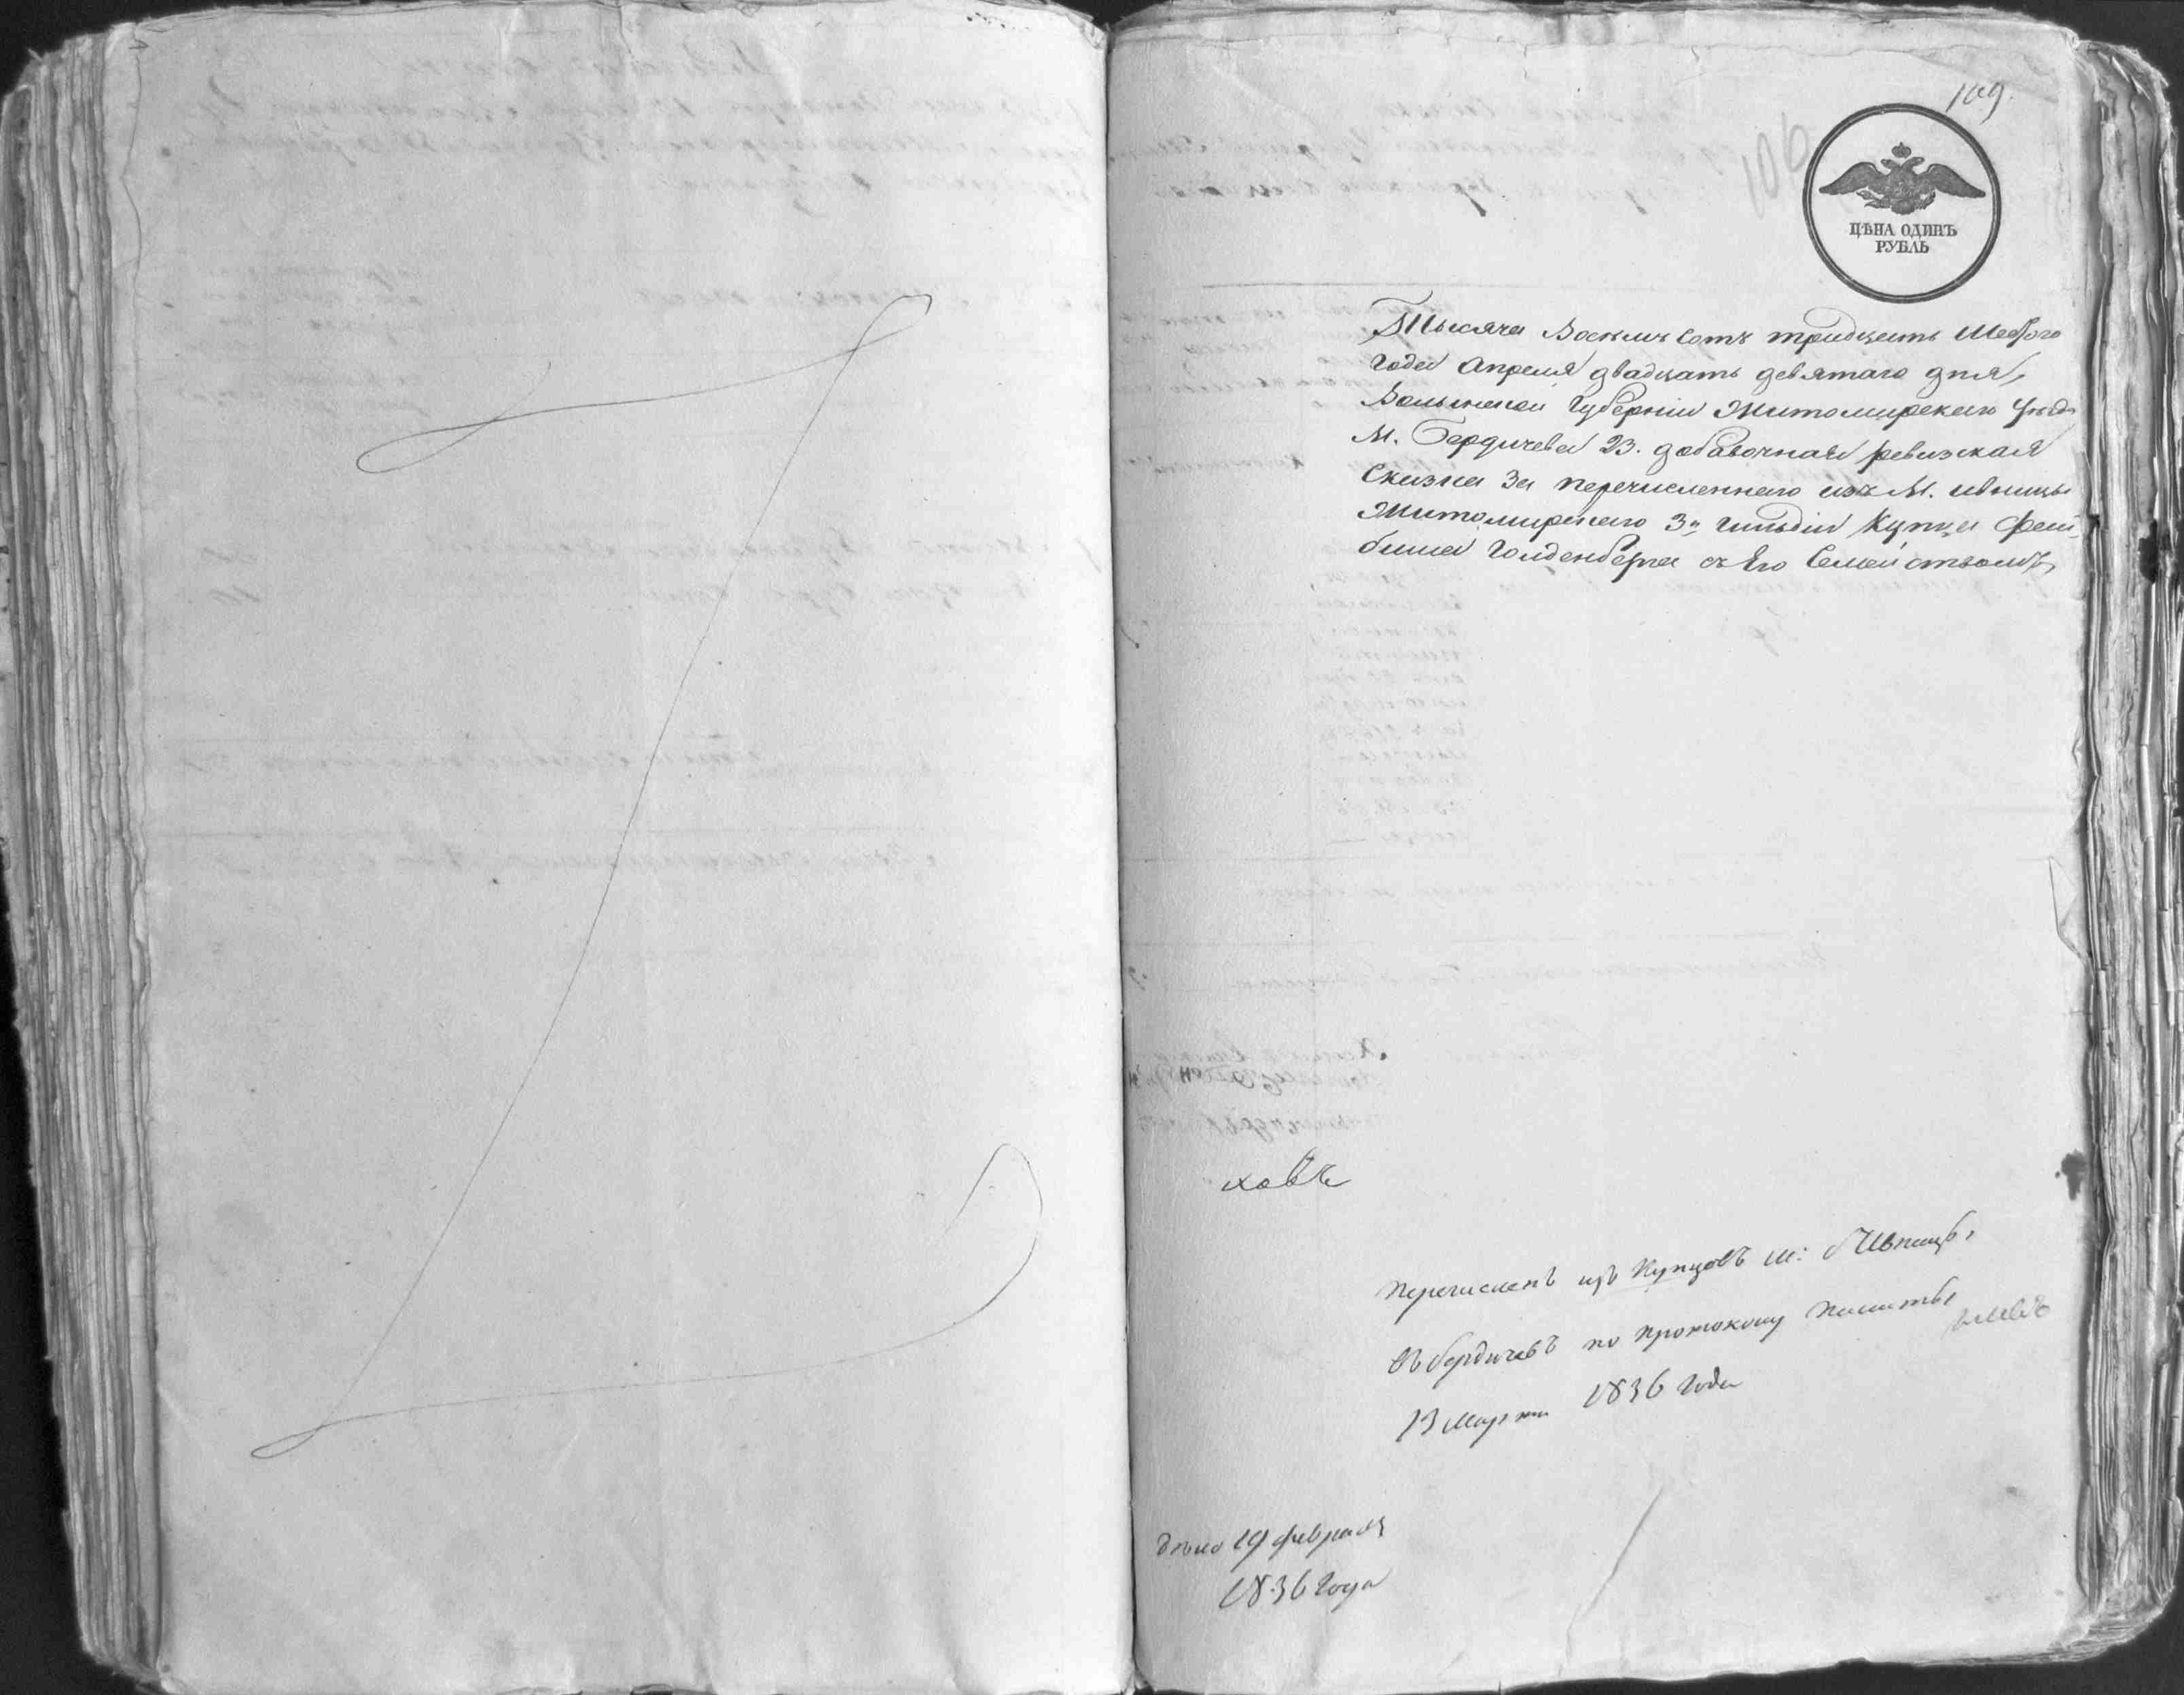 109.
106
ЦѢНА ОДИНЪ
РУБЛЬ
Тысяча Восемь Сотъ тридцать Шестого
Года Апреля двадцать девятаго дня,
Волынской Губерніи Житомирскаго уѣзда
М. Бердичева 23. добавочная ревизская
Сказка За перечисленнаго изъ М. ивницы
Житомирскаго 3й гильдіи Купца Фей-
биша Голденберга съ Его Семействомъ,
Перечисленъ изъ Купцовъ м: Ивницы
Въ Бердичевъ по протоколу
13 марта 1836 Года
дѣло 19 февраля
1836 Года